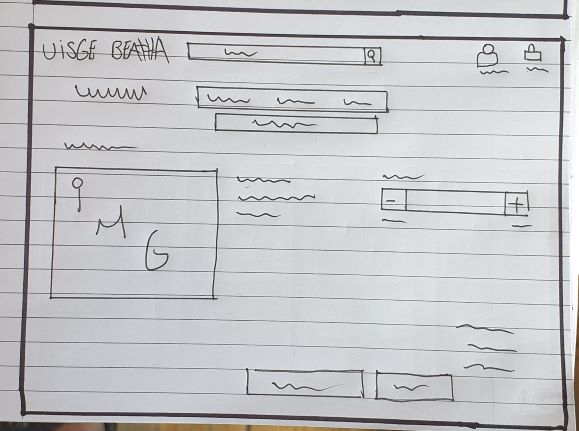 UISGE BEATHA
I
M
G
- +